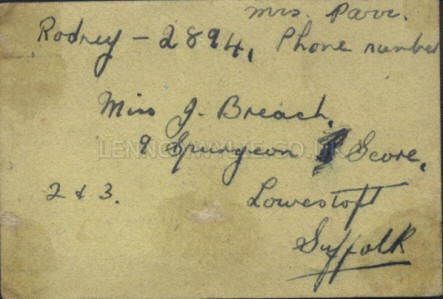 Mrs. Parr.
Rodney - 2894, Phone number
Miss J. Breach,
9 Spurgeon Score,
2 & 3. Lowestoft
Suffolk